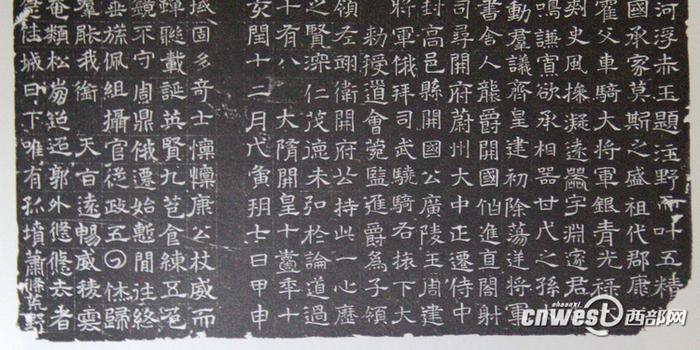 河浮赤玉題汪野叶五精
國承家莫斯之盛祖代郡康
霍父車騎大將軍銀青光祿
史風摻凝遠器宇淵邃君
鳴謙賓欲承相器甘代之孫
動羣議齊皇建初除蕩逆將軍
書舍人龍爵開國伯進直閤射
司尋開府蔚州大中正遷侍中
封高邑縣開國公廣陵王周建
將軍俄拜司武驍騎右掖下大
勑授道會菀監進爵為子領
領左翊衛開府公持此一心歷
之賢深仁茂德未弘於論道過
十有八 大隋開皇十年十
亥閏十二月戊寅朔七日甲申
固多奇士懍懍康公杖威而
載誕英賢九苞食練五色
鏡不守周鼎俄遷始暫閒往終
垂旒佩組攝官從政五休歸
羣我銜 天百遠暢威稜雲
奄類松迢遞郭外去者
佳城日下唯有孤墳蕭條荒野
shaanxi
cnwest西部网